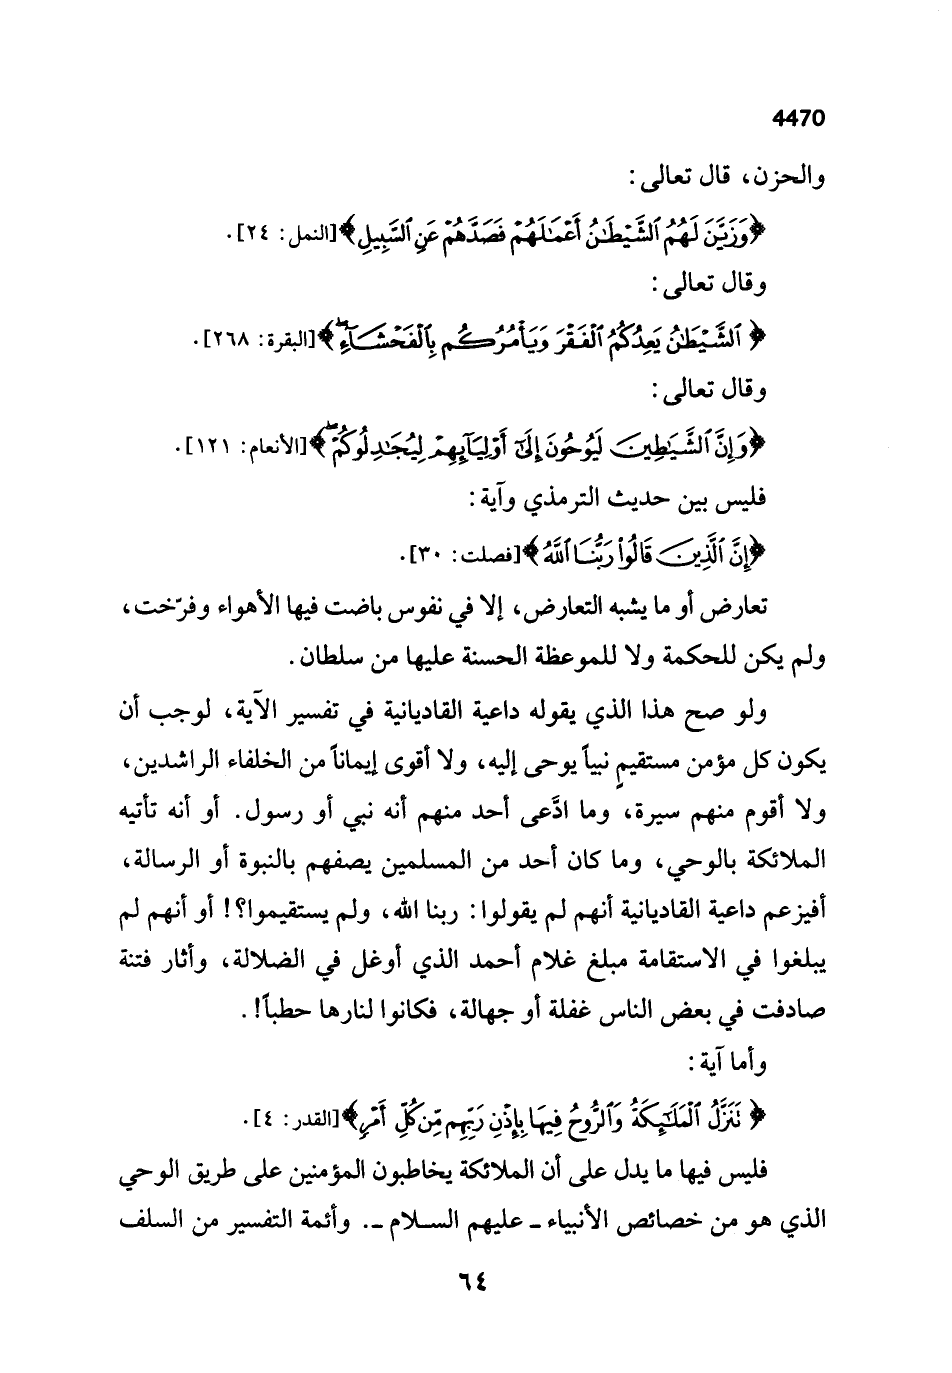 4470
والحزن، قال تعالى:
﴿وَزَيَّنَ لَهُمُ ٱلشَّيْطَٰنُ أَعْمَٰلَهُمْ فَصَدَّهُمْ عَنِ ٱلسَّبِيلِ﴾[النمل: ٢٤].
وقال تعالى:
﴿ٱلشَّيْطَٰنُ يَعِدُكُمُ ٱلْفَقْرَ وَيَأْمُرُكُم بِٱلْفَحْشَآءِ ۖ﴾[البقرة: ٢٦٨].
وقال تعالى:
﴿وَإِنَّ ٱلشَّيَٰطِينَ لَيُوحُونَ إِلَىٰٓ أَوْلِيَآئِهِمْ لِيُجَٰدِلُوكُمْ ۖ﴾[الأنعام: ١٢١].
فليس بين حديث الترمذي وآية:
﴿إِنَّ ٱلَّذِينَ قَالُوا۟ رَبُّنَا ٱللَّهُ﴾[فصلت: ٣٠].
تعارض أو ما يشبه التعارض، إلا في نفوس باضت فيها الأهواء وفرّخت،
ولم يكن للحكمة ولا للموعظة الحسنة عليها من سلطان.
ولو صح هذا الذي يقوله داعية القاديانية في تفسير الآية، لوجب أن
يكون كل مؤمن مستقيمٍ نبياً يوحى إليه، ولا أقوى إيماناً من الخلفاء الراشدين،
ولا أقوم منهم سيرة، وما ادَّعى أحد منهم أنه نبي أو رسول. أو أنه تأتيه
الملائكة بالوحي، وما كان أحد من المسلمين يصفهم بالنبوة أو الرسالة،
أفيزعم داعية القاديانية أنهم لم يقولوا: ربنا الله، ولم يستقيموا؟! أو أنهم لم
يبلغوا في الاستقامة مبلغ غلام أحمد الذي أوغل في الضلالة، وأثار فتنة
صادفت في بعض الناس غفلة أو جهالة، فكانوا لنارها حطباً!.
وأما آية:
﴿تَنَزَّلُ ٱلْمَلَٰٓئِكَةُ وَٱلرُّوحُ فِيهَا بِإِذْنِ رَبِّهِم مِّن كُلِّ أَمْرٍ﴾[القدر: ٤].
فليس فيها ما يدل على أن الملائكة يخاطبون المؤمنين على طريق الوحي
الذي هو من خصائص الأنبياء ـ عليهم السلام ـ. وأئمة التفسير من السلف
٦٤